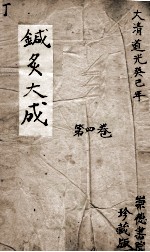 大清道光癸巳年
丁
鍼灸大成
第四巻
崇德書院
珍藏版